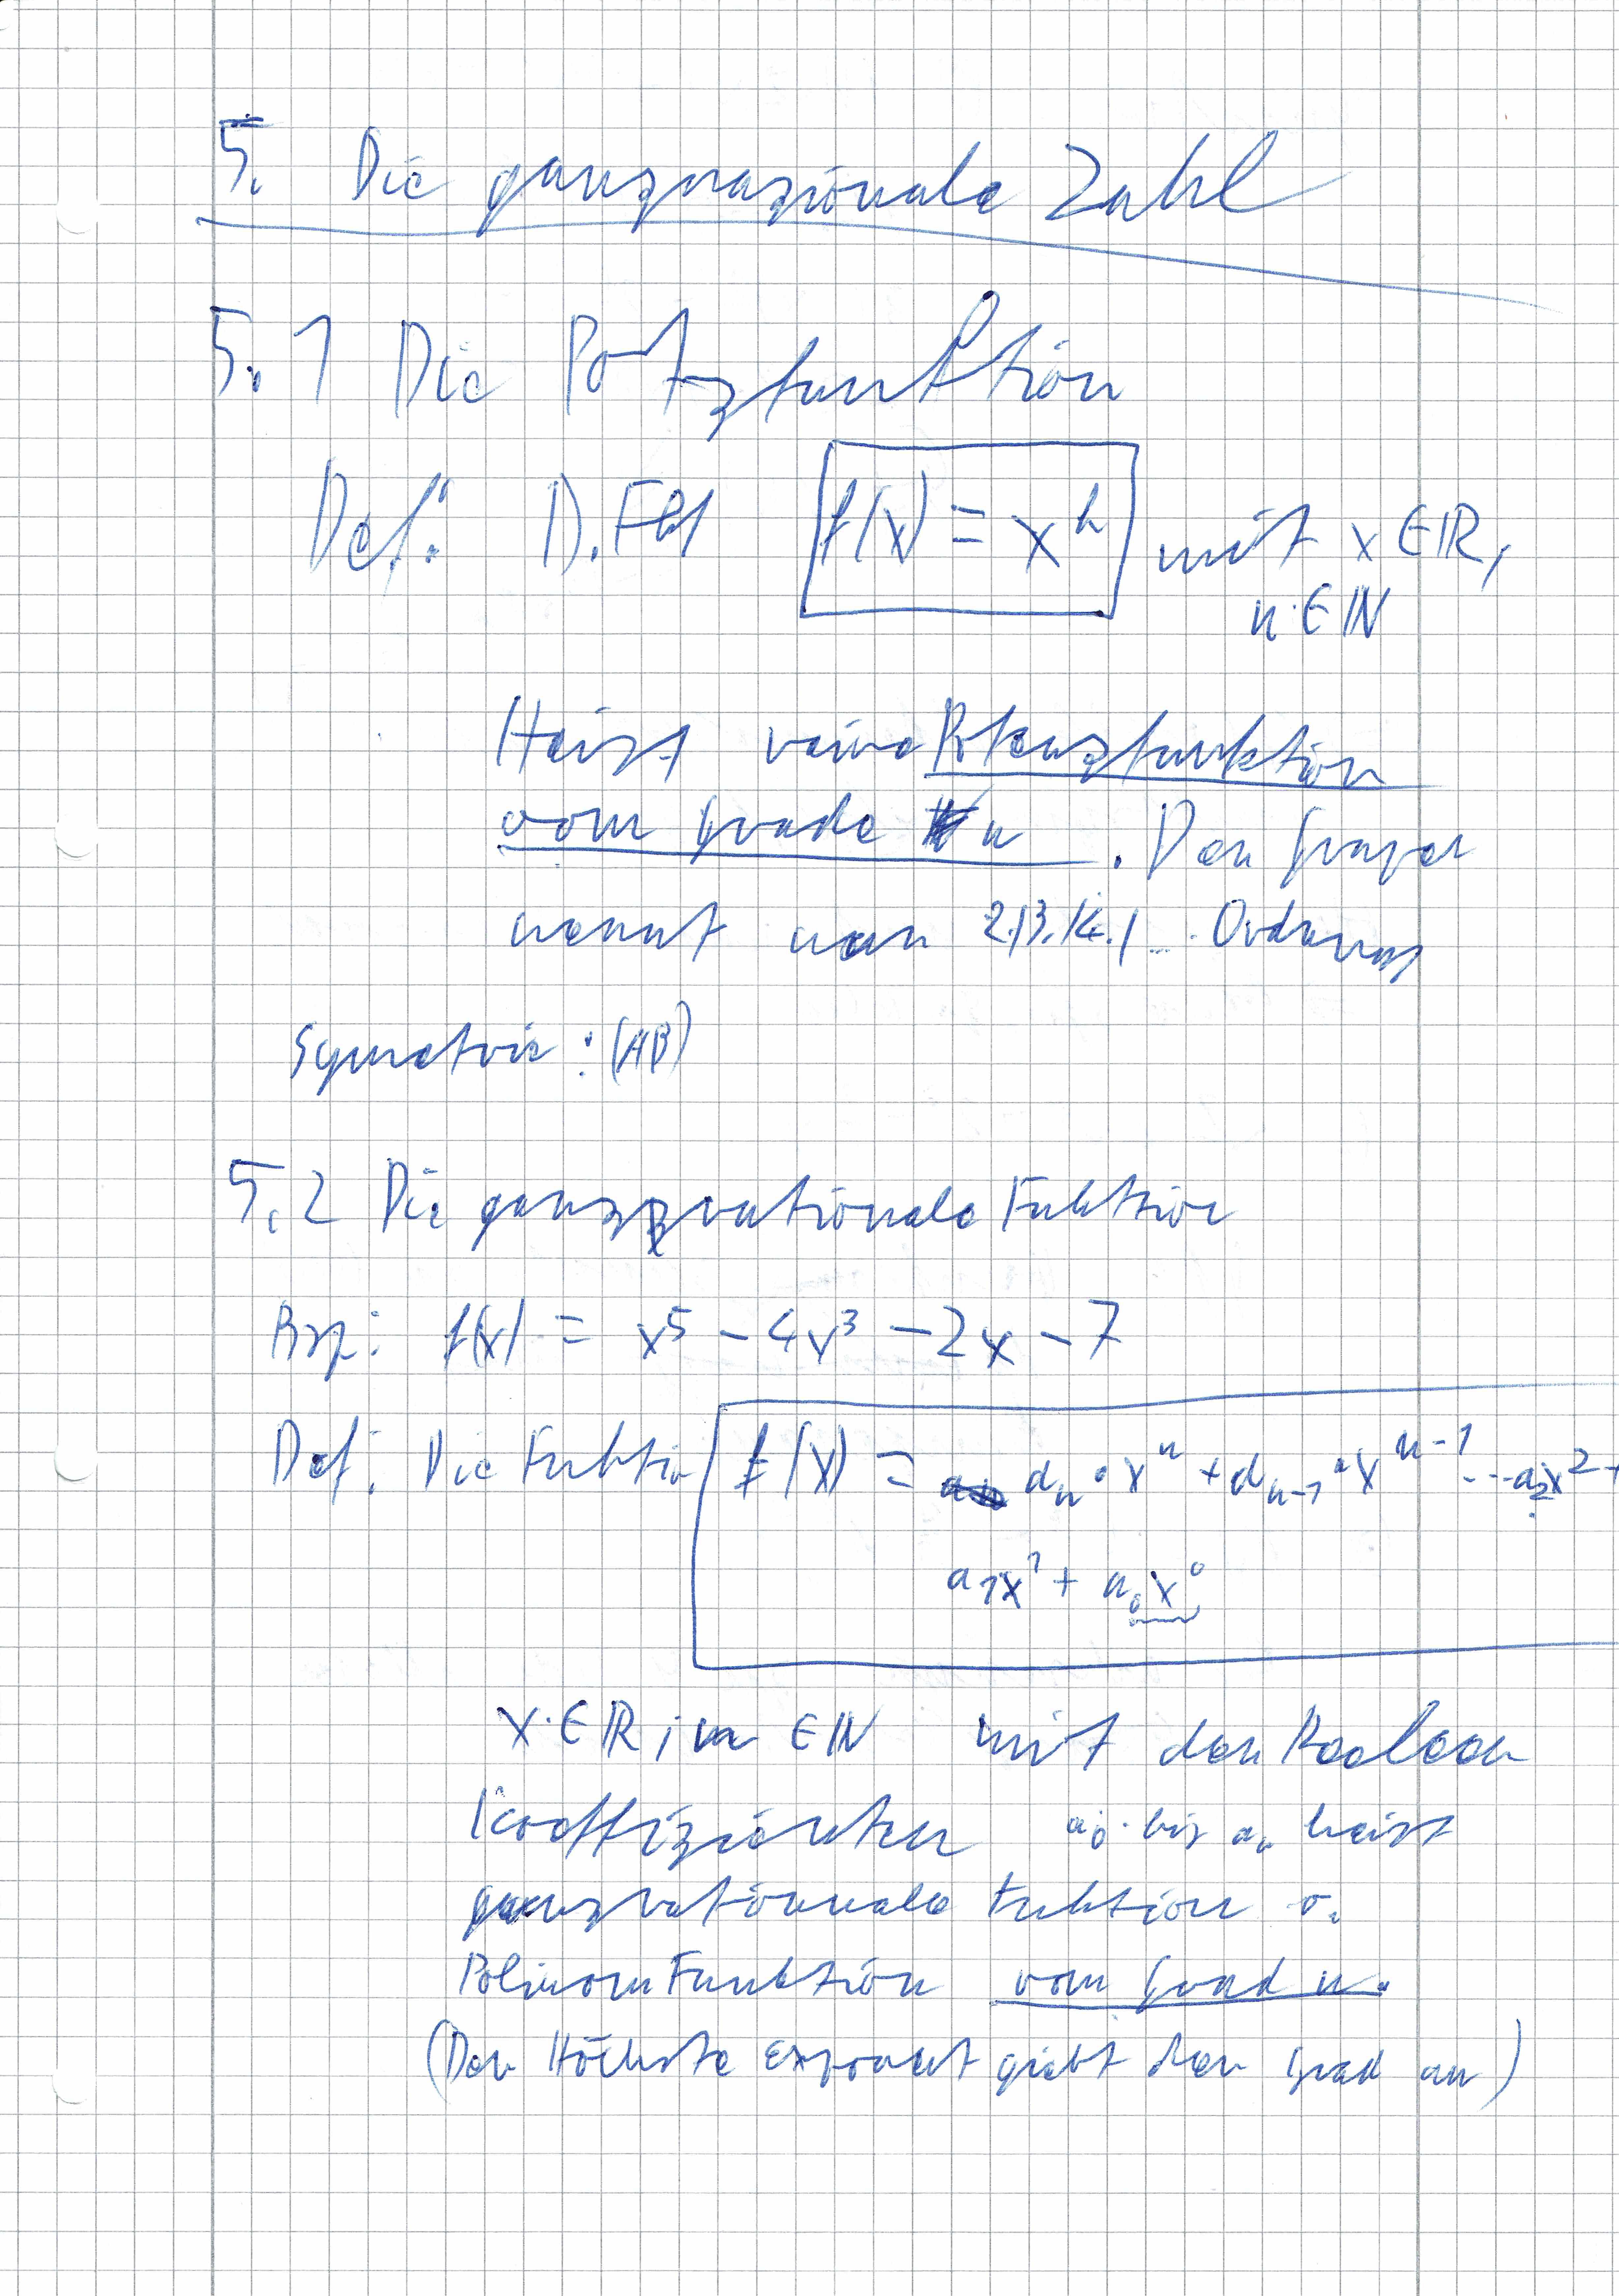 5. Die ganzrazionale Zahl
5.1 Die Potzfunktion
Def.: D. Fkt f(x) = x^n mit x ∈ ℝ,
n ∈ ℕ
Heist reine Potenzfunktion
vom grade n . Den
nennt man 2./3./4./... Ordnung
Symetrie : (AB)
5.2 Die ganzrationale Fuktion
Bsp: f(x) = x^5 - 4x^3 - 2x - 7
Def: Die Fuktio f(x) = a_n · x^n + a_{n-1} · x^{n-1} ... a_2x^2 +
a_1x^1 + a_0x^0
x ∈ ℝ ; n ∈ ℕ mit den Reeleen
Koeffizienten a_0 bis a_n heist
ganzrationale Fuktion o.
Polinom Funktion vom Grad n.
(Der Höchste exponent giebt den Grad an)